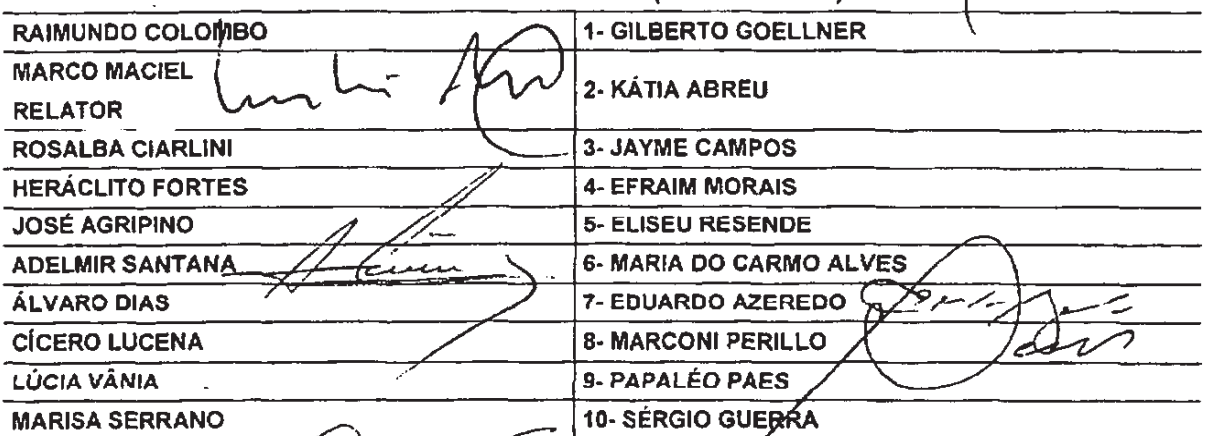 RAIMUNDO COLOMBO
1- GILBERTO GOELLNER
MARCO MACIEL
RELATOR
2- KÁTIA ABREU
ROSALBA CIARLINI
3- JAYME CAMPOS
HERÁCLITO FORTES
4- EFRAIM MORAIS
JOSÉ AGRIPINO
5- ELISEU RESENDE
ADELMIR SANTANA
6- MARIA DO CARMO ALVES
ÁLVARO DIAS
7- EDUARDO AZEREDO
CÍCERO LUCENA
8- MARCONI PERILLO
LÚCIA VÂNIA
9- PAPALÉO PAES
MARISA SERRANO
10- SÉRGIO GUERRA